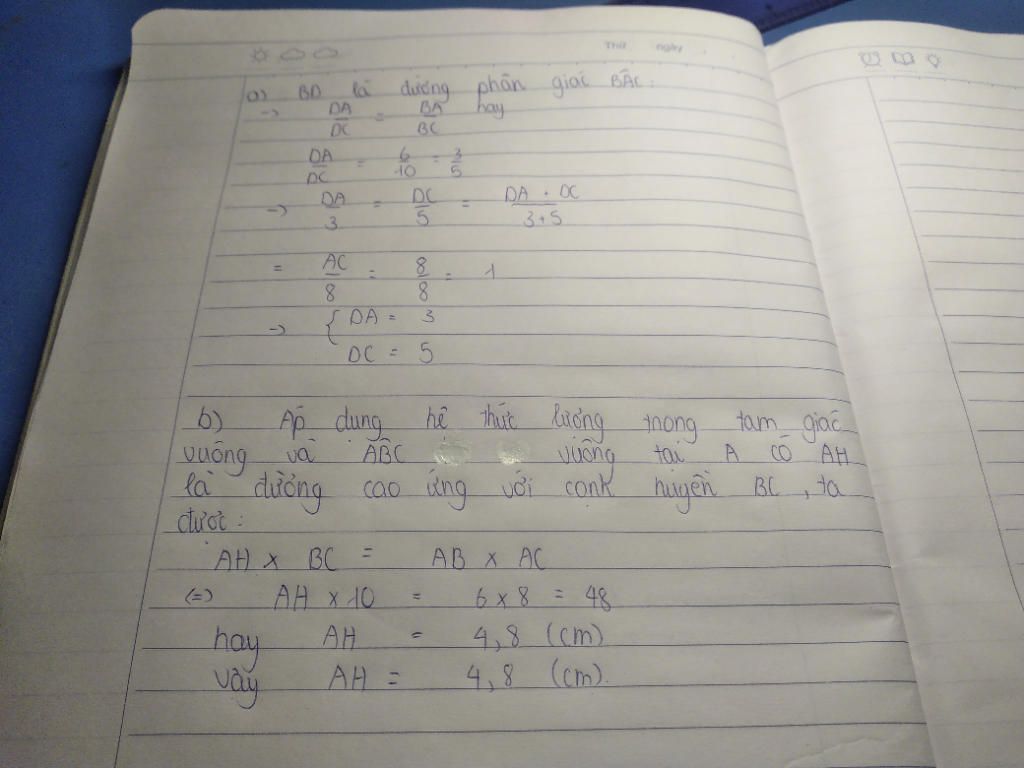 Thứ ngày
a) BD là đường phân giác BÂC:
→ DA/DC = BA/BC hay
DA/DC = 6/10 = 3/5
→ DA/3 = DC/5 = DA + DC/3+5
= AC/8 = 8/8 = 1
→ { DA = 3
DC = 5
b) Áp dụng hệ thức lượng trong tam giác
vuông và ABC vuông tại A có AH
là đường cao ứng với cạnh huyền BC, ta
được:
AH x BC = AB x AC
(=) AH x 10 = 6 x 8 = 48
hay AH = 4,8 (cm)
vậy AH = 4,8 (cm).